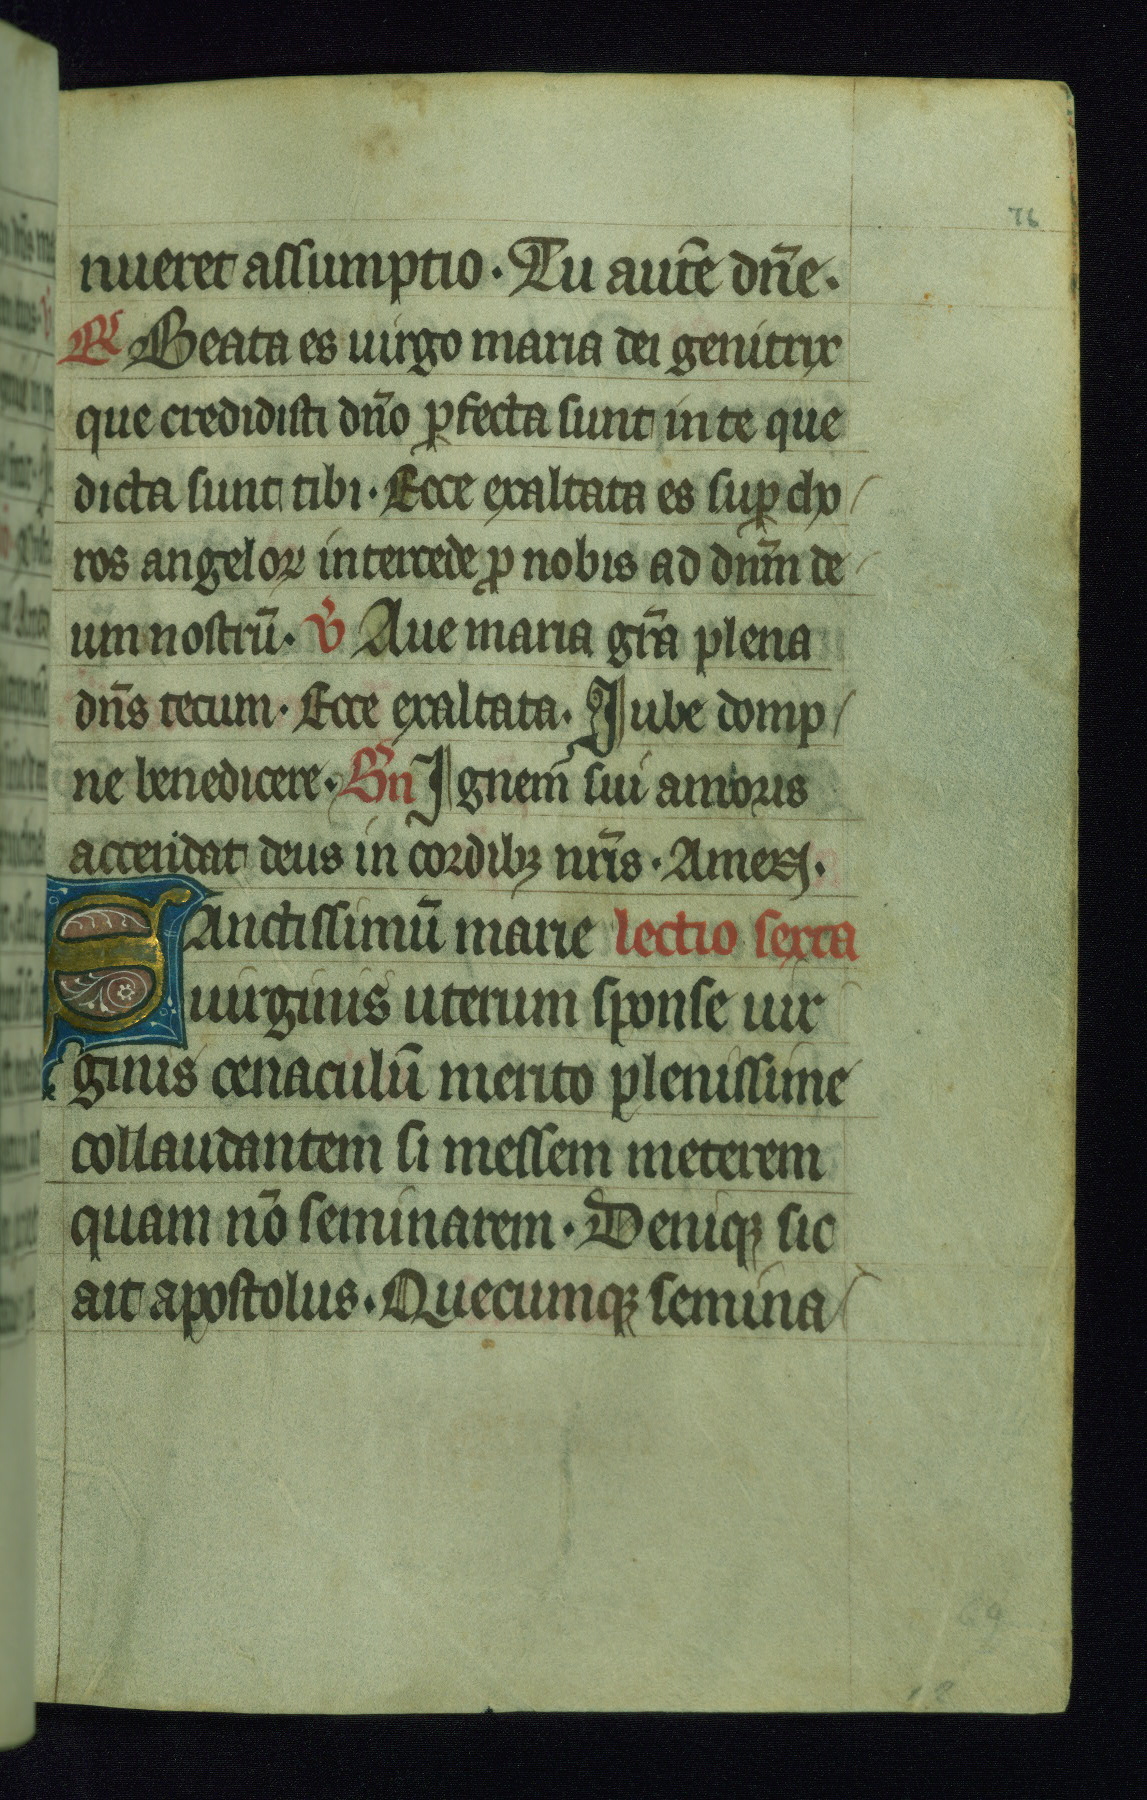 76
nueret assumptio · Tu autē dn̄e ·
R Beata es uirgo maria dei genitrix
que credidisti dn̄o ꝑfecta sunt in te que
dicta sunt tibi · Ecce exaltata es suꝑ cho
ros angeloꝝ intercede ꝓ nobis ad dn̄m de
um nostrū · V Aue maria gr̄a plena
dn̄s tecum · Ecce exaltata · Jube domp
ne benedicere · Bn̄ Ignem sui amoris
accendat deus in cordibꝫ nr̄is · Amen ·
SAnctissimū marie lectio sexta
uirginis uterum sponse uir
ginis cenaculū merito plenissime
collaudantem si messem meterem
quam nō seminarem · Deniqꝫ sic
ait apostolus · Quecumqꝫ semina
69